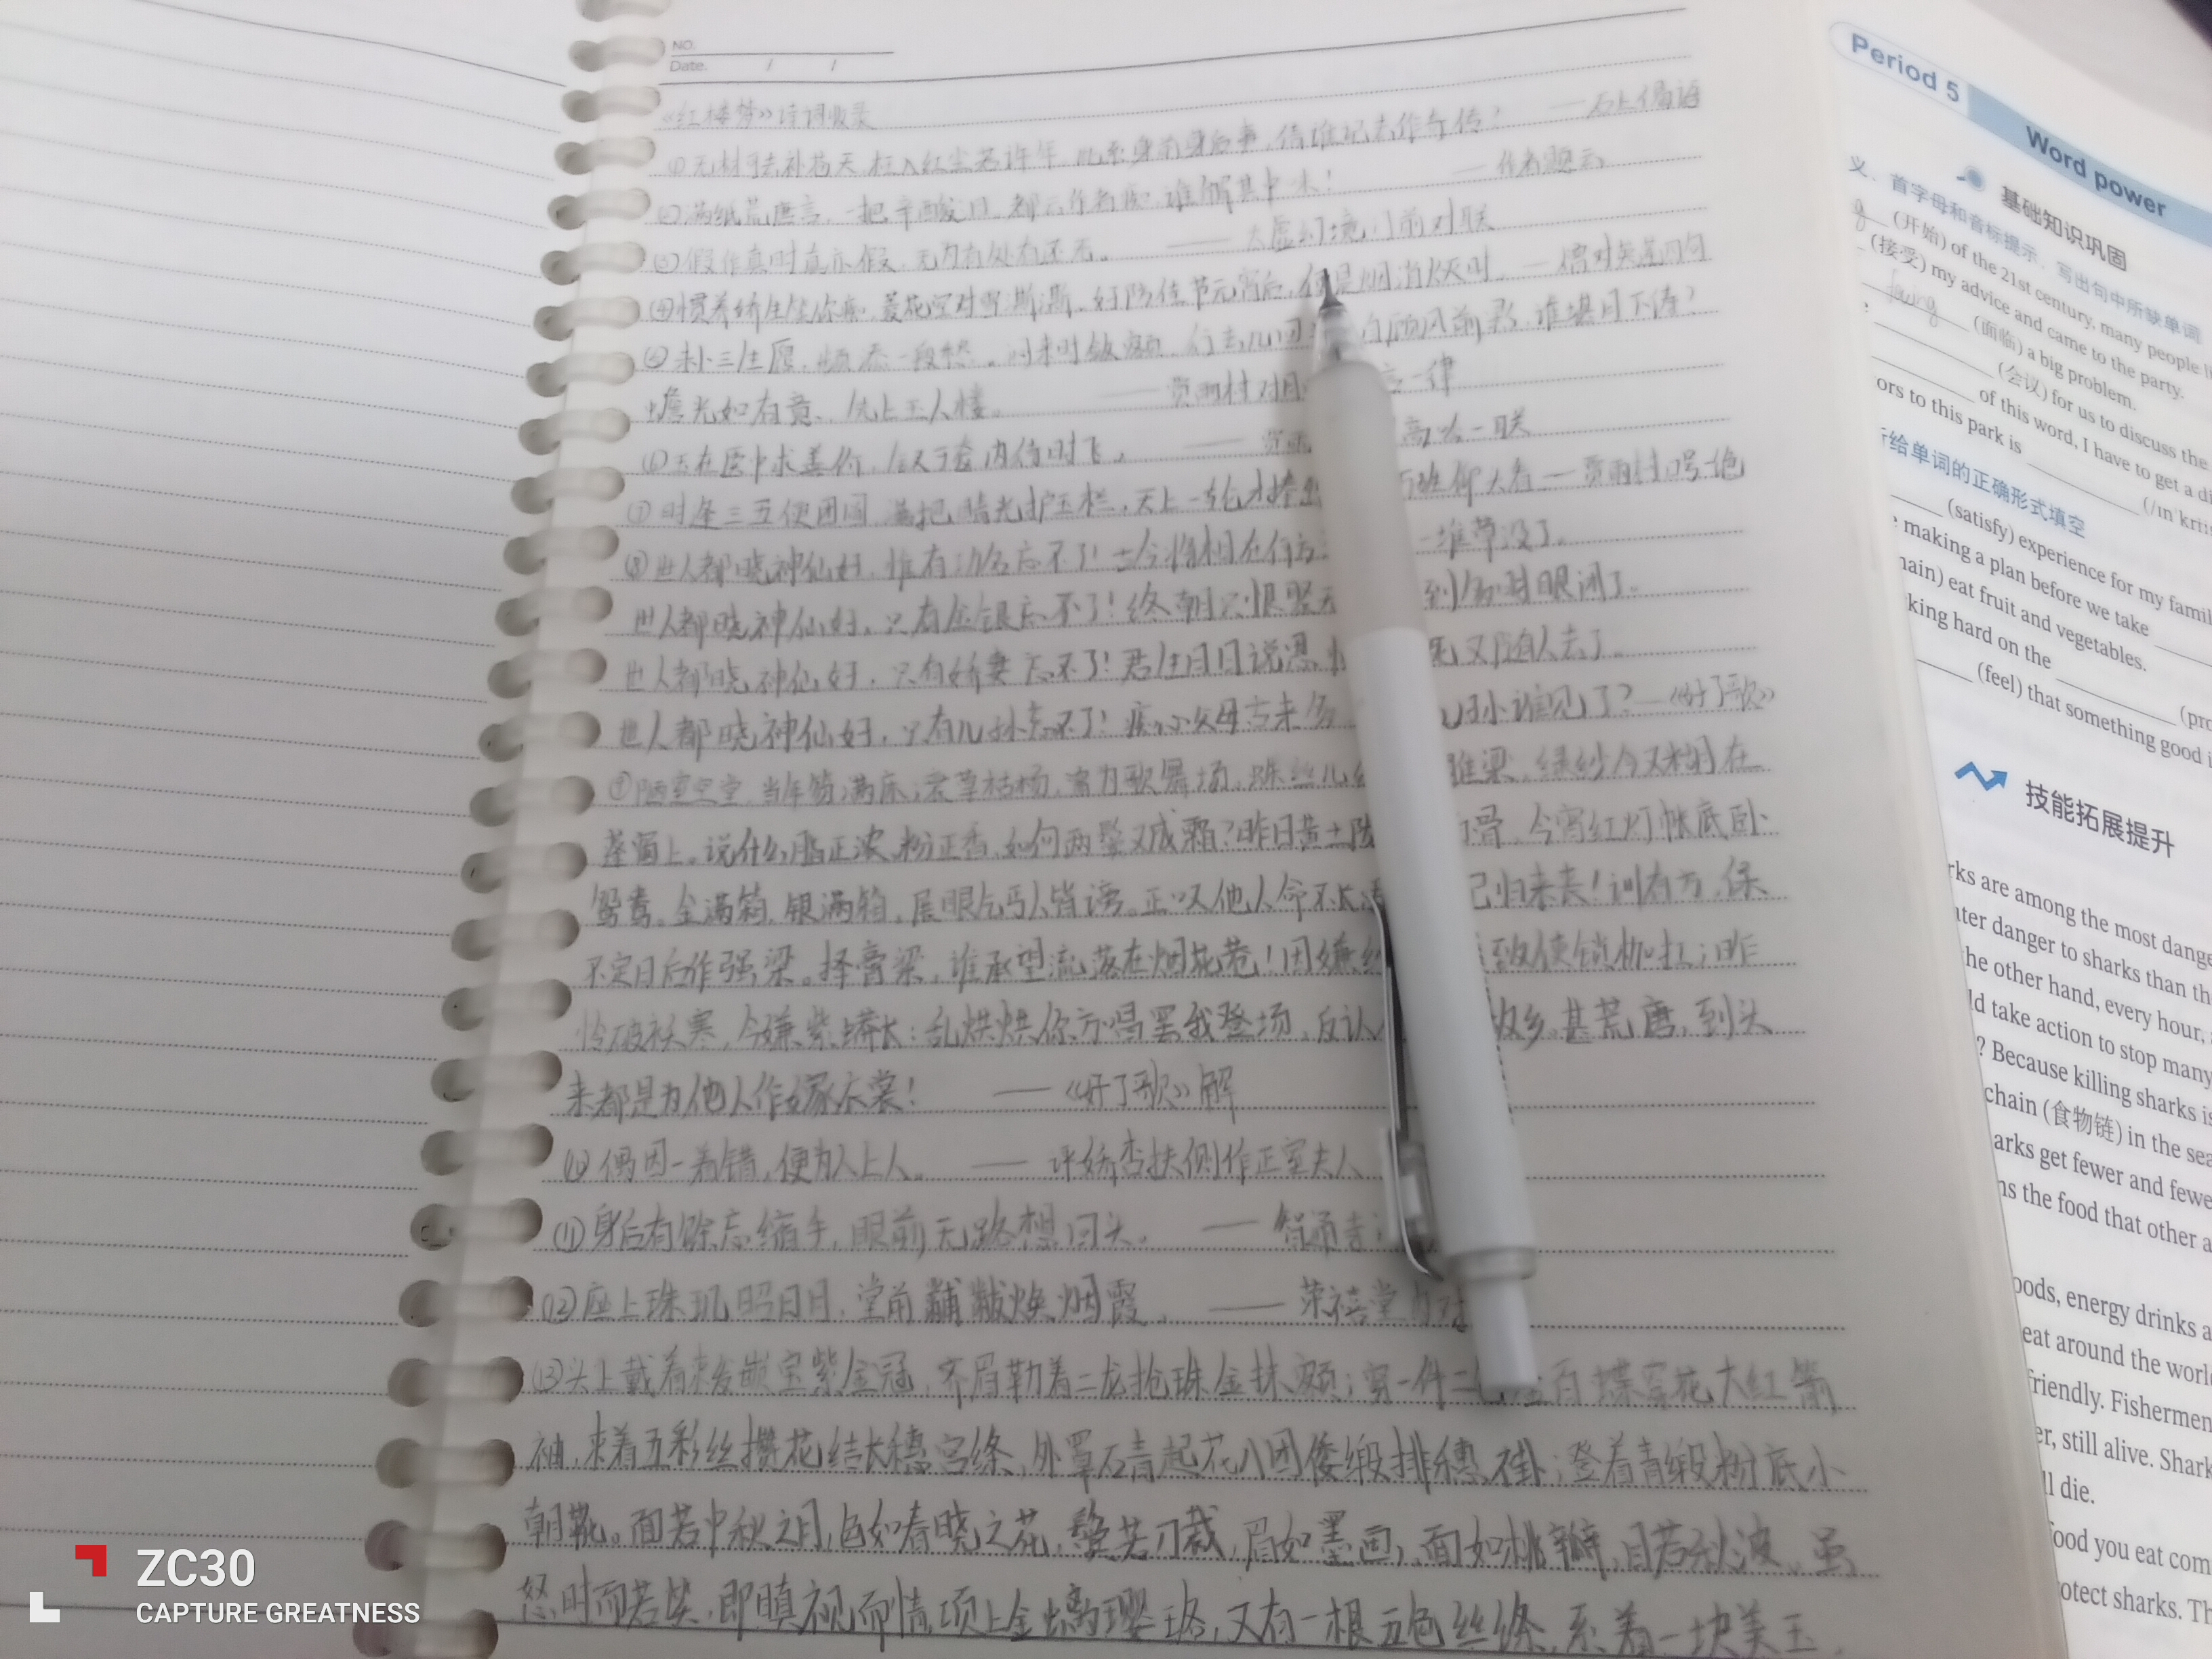 NO.
Date. / /
《红楼梦》诗词收录
①无材可去补苍天,枉入红尘若许年。此系身前身后事,倩谁记去作奇传? ——石上偈语
②满纸荒唐言,一把辛酸泪。都云作者痴,谁解其中味! ——作者题云
③假作真时真亦假,无为有处有还无。 ——太虚幻境门前对联
④惯养娇生笑你痴,菱花空对雪澌澌。好防佳节元宵后,便是烟消火灭时。 —僧对英莲四句
⑤未卜三生愿,频添一段愁。闷来时敛额,行去几回 自顾风前影,谁堪月下俦?
蟾光如有意,先上玉人楼。 ——贾雨村对月 言一律
⑥玉在匮中求善价,钗于奁内待时飞。 ——贾 高吟一联
⑦时逢三五便团圆,满把晴光护玉栏,天上一轮才捧出 万姓仰头看—贾雨村口号一绝
⑧世人都晓神仙好,惟有功名忘不了!古今将相在何方 一堆草没了。
世人都晓神仙好,只有金银忘不了!终朝只恨聚无 到多时眼闭了。
世人都晓神仙好,只有娇妻忘不了!君生日日说恩 死又随人去了。
世人都晓神仙好,只有儿孙忘不了!痴心父母古来多 儿孙谁见了?—《好了歌》
⑨陋室空堂,当年笏满床;衰草枯杨,曾为歌舞场,蛛丝儿 雕梁,绿纱今又糊在
蓬窗上。说什么脂正浓,粉正香,如何两鬓又成霜?昨日黄土陇 白骨,今宵红灯帐底卧
鸳鸯。金满箱,银满箱,展眼乞丐人皆谤。正叹他人命不长 己归来丧!训有方,保
不定日后作强梁。择膏粱,谁承望流落在烟花巷!因嫌纱 致使锁枷扛;昨
怜破袄寒,今嫌紫蟒长:乱烘烘你方唱罢我登场,反认 故乡。甚荒唐,到头
来都是为他人作嫁衣裳! ——《好了歌》解
⑩偶因一着错,便为人上人。 ——评娇杏扶侧作正室夫人
⑪身后有馀忘缩手,眼前无路想回头。 ——智通寺
⑫座上珠玑昭日月,堂前黼黻焕烟霞。 ——荣禧堂
⑬头上戴着束发嵌宝紫金冠,齐眉勒着二龙抢珠金抹额;穿一件二 金百蝶穿花大红箭
袖,束着五彩丝攒花结长穗宫绦,外罩石青起花八团倭缎排穗褂;登着青缎粉底小
朝靴。面若中秋之月,色如春晓之花,鬓若刀裁,眉如墨画,面如桃瓣,目若秋波。虽
怒时而若笑,即瞋视而情,项上金螭璎珞,又有一根五色丝绦,系着一块美玉。
Period 5
Word power
基础知识巩固
义、首字母和音标提示,写出句中所缺单词
(开始) of the 21st century, many people
(接受) my advice and came to the party.
facing (面临) a big problem.
(会议) for us to discuss the
of this word, I have to get a
ors to this park is
所给单词的正确形式填空
(satisfy) experience for my
making a plan before we take
eat fruit and vegetables.
king hard on the
(feel) that something good
技能拓展提升
are among the most
danger to sharks than
the other hand, every hour,
take action to stop many
? Because killing sharks
chain (食物链) in the
get fewer and
the food that other
energy drinks
eat around the
friendly. Fishermen
still alive.
die.
food you eat
protect sharks.
ZC30
CAPTURE GREATNESS